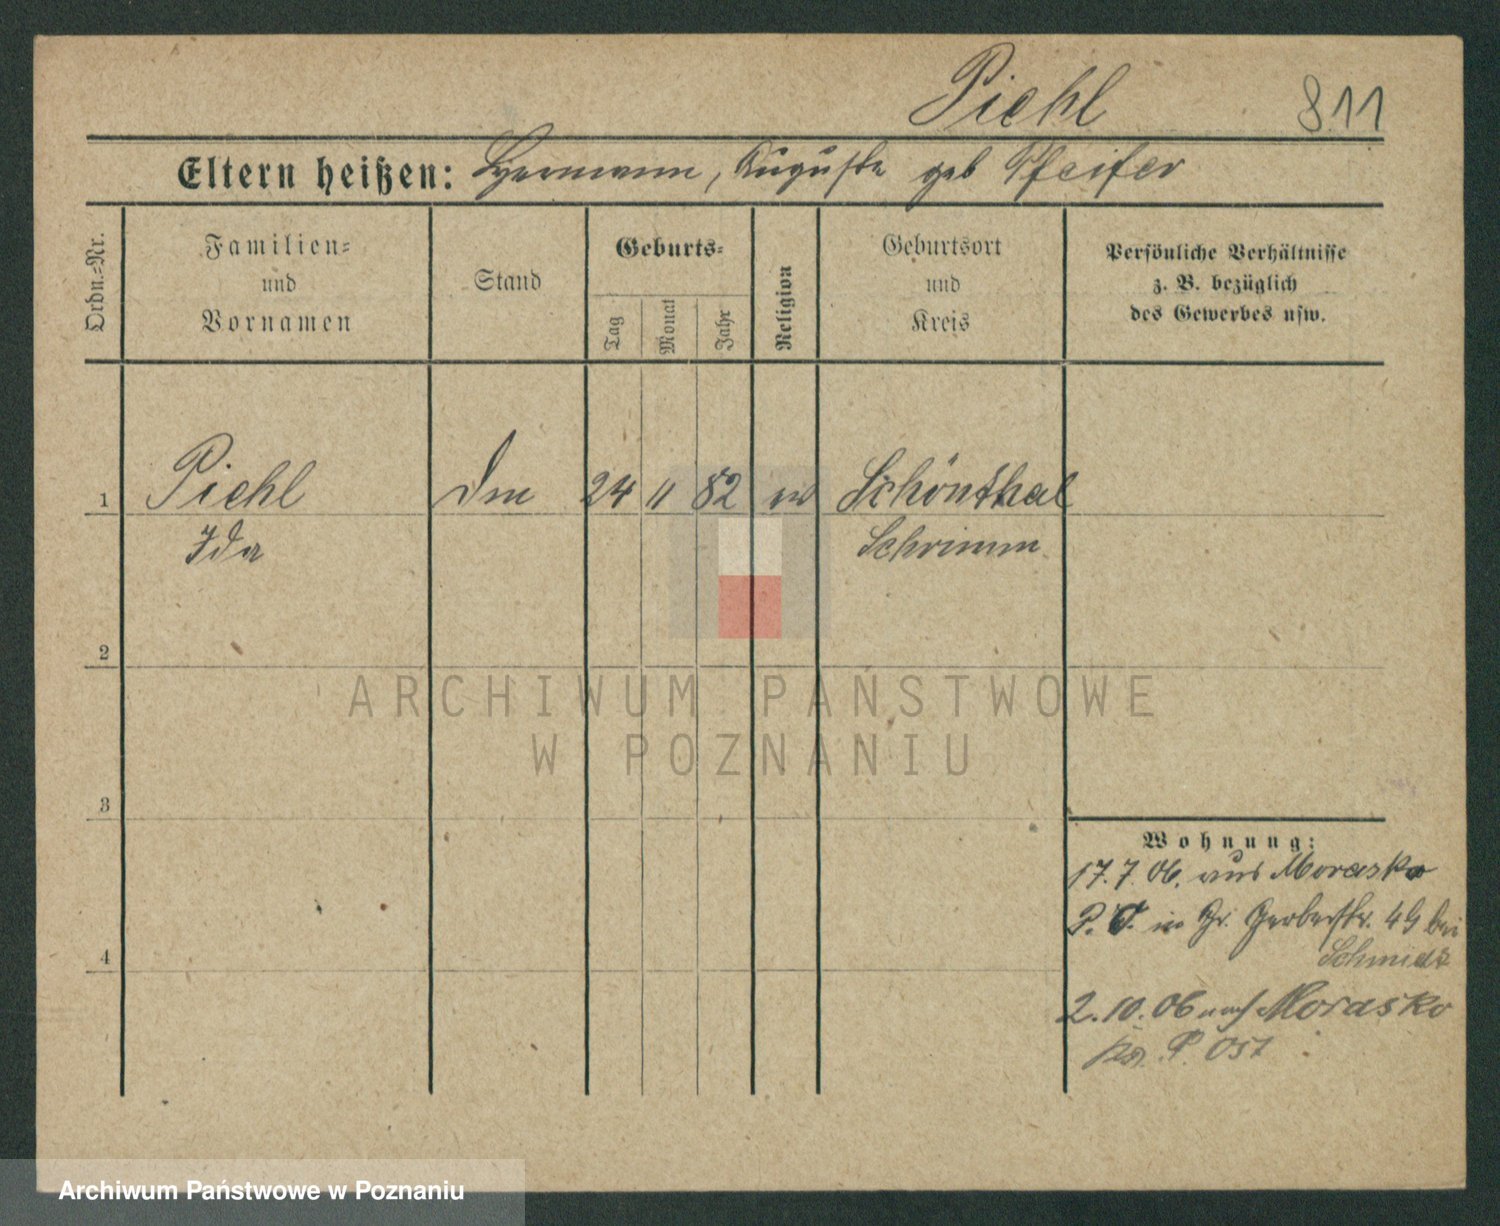 Piehl 811
Eltern heißen: Hermann, Auguste geb Pfeifer
Ordn.=Nr.
Familien=
und
Vornamen
Stand
Geburts=
Tag
Monat
Jahr
Religion
Geburtsort
und
Kreis
Persönliche Verhältnisse
z. B. bezüglich
des Gewerbes usw.
1 Piehl 24 11 82 ev Schönthal
Ida Schrimm
2
3
4
Wohnung:
17.7.06. aus Morasko
P. O. in Gr. Gerberstr. 49 bei
Schmidt
2.10.06 nach Morasko
Kr. P. Ost
ARCHIWUM PAŃSTWOWE
W POZNANIU
Archiwum Państwowe w Poznaniu